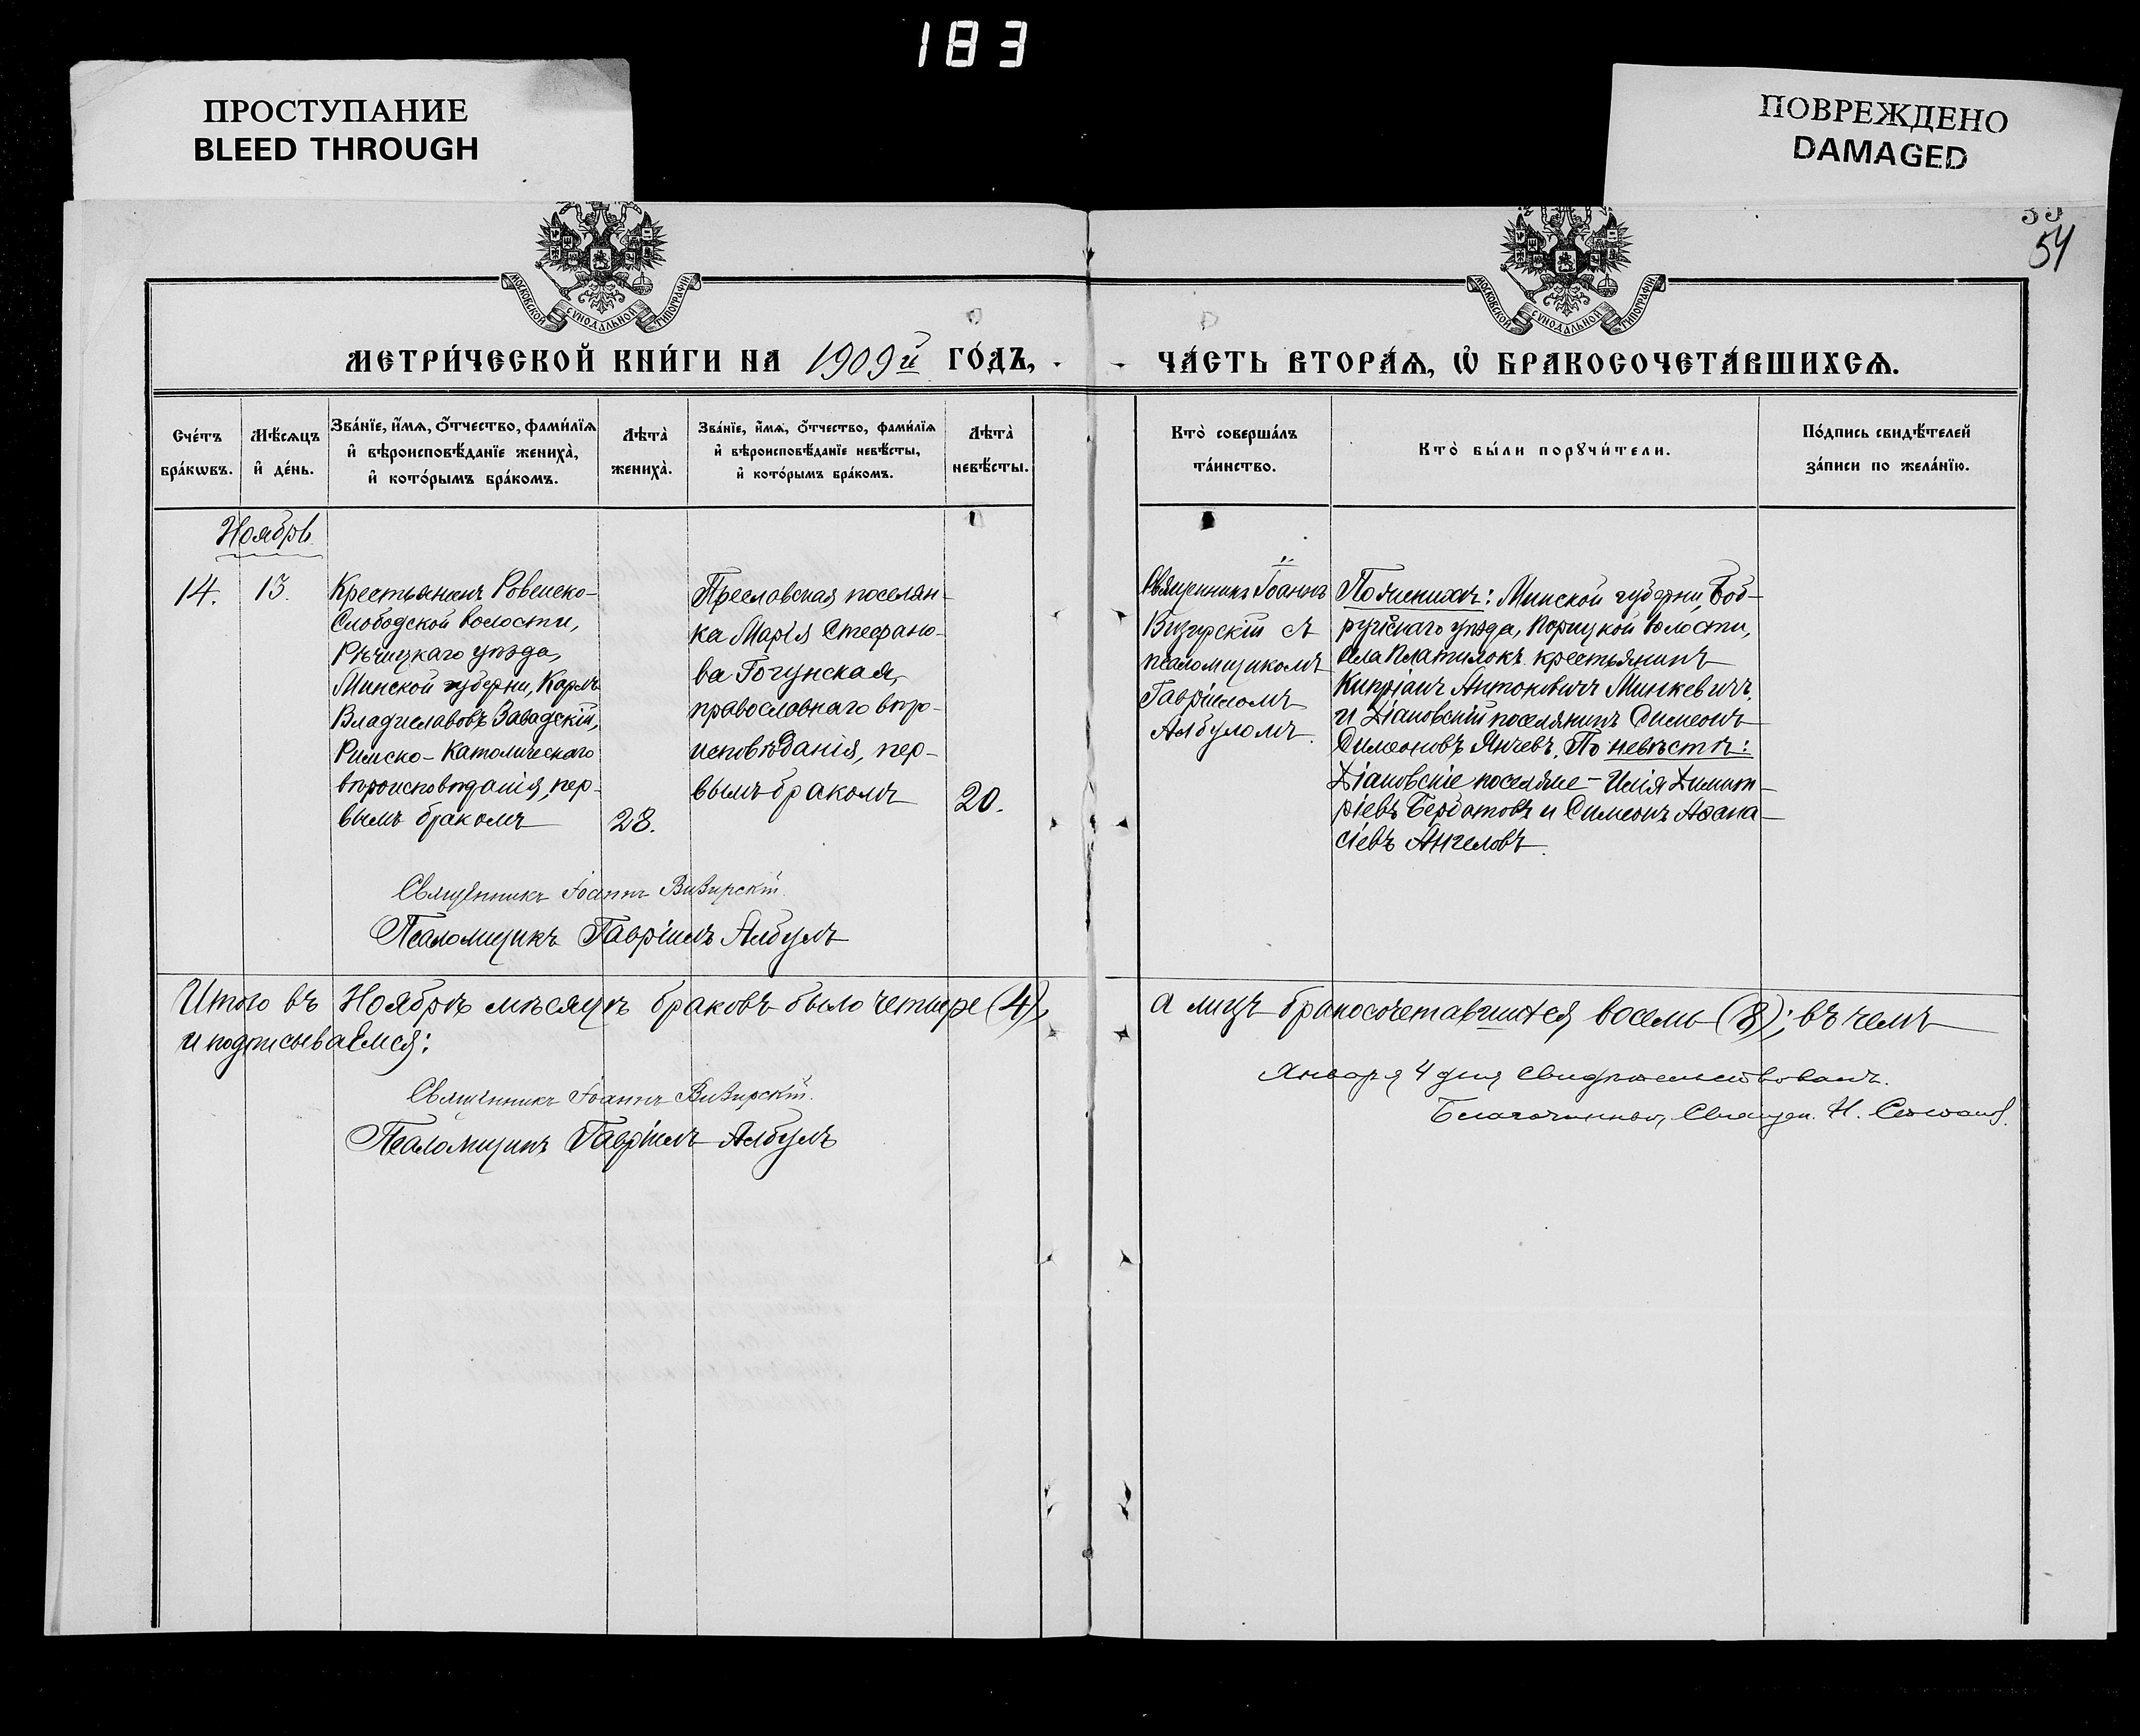 183
ПРОСТУПАНИЕ
BLEED THROUGH
ПОВРЕЖДЕНО
DAMAGED
54
МОСКОВСКОЙ СУНОДАЛЬНОЙ ТИПОГРАФІИ
МОСКОВСКОЙ СУНОДАЛЬНОЙ ТИПОГРАФІИ
МЕТРИ́ЧЕСКОЙ КНИ́ГИ НА 1909й ГО́ДЪ,
ЧА́СТЬ ВТОРА́Ѧ, Ѡ҆ БРАКОСОЧЕТА́ВШИХСѦ.
Сче́тъ бра́кѡвъ.
Мѣ́сѧцъ и҆ де́нь.
Зва́нїе, и҆́мѧ, ѻ҆́тчество, фами́лїѧ и҆ вѣроисповѣ́данїе жениха̀, и҆ кото́рымъ бра́комъ.
Лѣ́та̀ жениха̀.
Зва́нїе, и҆́мѧ, ѻ҆́тчество, фами́лїѧ и҆ вѣроисповѣ́данїе невѣ́сты, и҆ кото́рымъ бра́комъ.
Лѣ́та̀ невѣ́сты.
Кто̀ соверша́лъ та́инство.
Кто̀ бы́ли порꙋчи́тели.
По́дпись свидѣ́телей за́писи по жела́нїю.
Ноябрь
14.
13.
Крестьянинъ Ровенско-
Слободской волости,
Рѣчицкаго уѣзда,
Минской губерни, Карлъ
Владиславовъ Завадскій,
Римско-Католическаго
вѣроисповѣданія, пер-
вымъ бракомъ
28.
Преславская поселян-
ка Марія Стефано-
ва Гогунская,
православнаго вѣро-
исповѣданія, пер-
вымъ бракомъ
20.
Священникъ Іоаннъ
Визирскій съ
псаломщикомъ
Гавріиломъ
Албуломъ.
По женихѣ: Минской губерни, Боб-
руйскаго уѣзда, Порицкой волости,
села Платилокъ крестьянинъ
Кипріанъ Антоновичъ Минкевичъ
и Діановскій поселянинъ Симеонъ
Симеоновъ Янчевъ. По невѣстѣ:
Діановскіе поселяне - Илія Димит-
ріевъ Берботовъ и Симеонъ Афана-
сіевъ Ангеловъ.
Священникъ Іоаннъ Визирскій.
Псаломщикъ Гавріилъ Албулъ
Итого въ Ноябрѣ мѣсяцѣ браковъ было четыре (4),
а лицъ бракосочетавшихся, восемь (8); въ чемъ
и подписываемся:
Священникъ Іоаннъ Визирскій.
Псаломщикъ Гавріилъ Албулъ
Января 4 дня свидѣтельствовалъ.
Благочинный, Священ. Н.